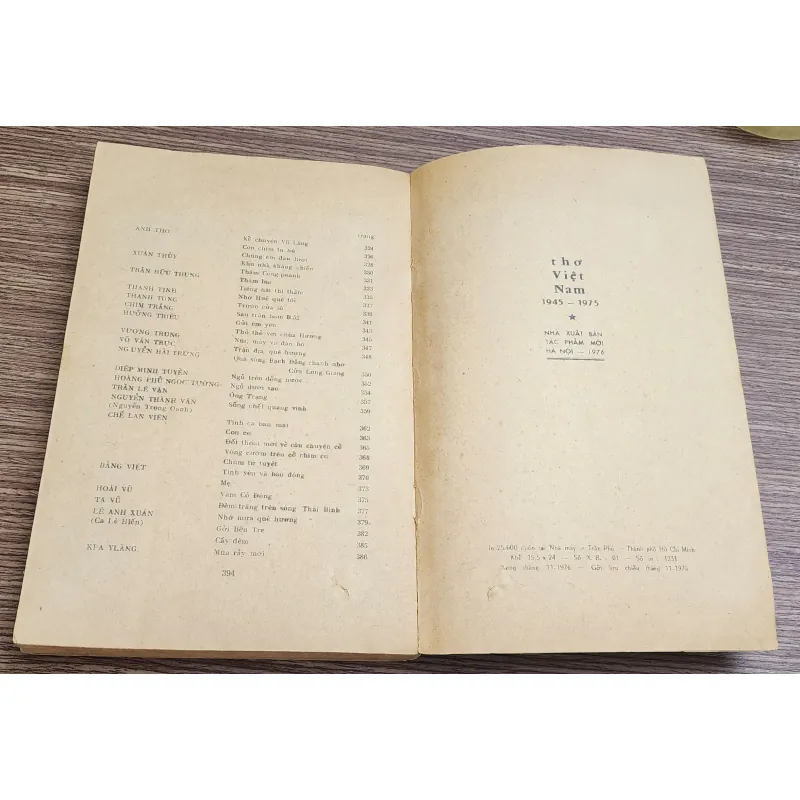 trang
ANH THƠ Kể chuyện Vũ Lăng 324
Con chim tu hú 326
XUÂN THỦY Chúng em dân lươi 328
Khu nhà kháng chiến 330
TRẦN HỮU THUNG Thăm Công Quành 331
Thăm lúa 333
THANH TỊNH Từng bài thi thiếc 335
THANH TÙNG Nhớ Huế quê tôi 337
CHIM TRẮNG Trước cửa sổ 339
HƯỞNG TRIỀU Sau trận bom B.52 341
Gởi em yêu 343
VƯƠNG TRỌNG Thỏ thẻ với chùa Hương 345
VÕ VĂN TRỰC Núi, mây và đàn bò 347
NGUYỄN HẢI TRỪNG Trận địa, quê hương 348
Qua sông Bạch Đằng chạnh nhớ
Cửu Long Giang 350
DIỆP MINH TUYỀN Ngủ trên đồng nước 352
HOÀNG PHỦ NGỌC TƯỜNG Ngủ dưới sao 354
TRẦN LÊ VĂN Ông Trạng 357
NGUYỄN THÀNH VÂN Sống chết quang vinh 359
(Nguyễn Trọng Oánh)
CHẾ LAN VIÊN Tình ca ban mai 362
Con cò 363
Đối thoại mới về câu chuyện cổ 365
Vòng cườm trên cổ chim cu 368
Chùm từ tuyệt 369
BẰNG VIỆT Tình yêu và báo động 370
Mẹ 373
HOÀI VŨ Vàm Cỏ Đông 375
TẠ VŨ Đêm trăng trên sông Thái Bình 377
LÊ ANH XUÂN Nhớ mưa quê hương 379
(Ca Lê Hiến) Gởi Bến Tre 382
Cấy đêm 385
KPA YLĂNG Mùa rẫy mới 386
394
thơ
Việt
Nam
1945 - 1975
★
NHÀ XUẤT BẢN
TÁC PHẨM MỚI
HÀ NỘI - 1976
In 25.600 cuốn tại Nhà máy in Trần Phú - Thành phố Hồ Chí Minh
Khổ 15,5 x 24 - Số X. B. : 01 - Số in : 1231
Xong tháng 11.1976 - Gởi lưu chiểu tháng 11.1976